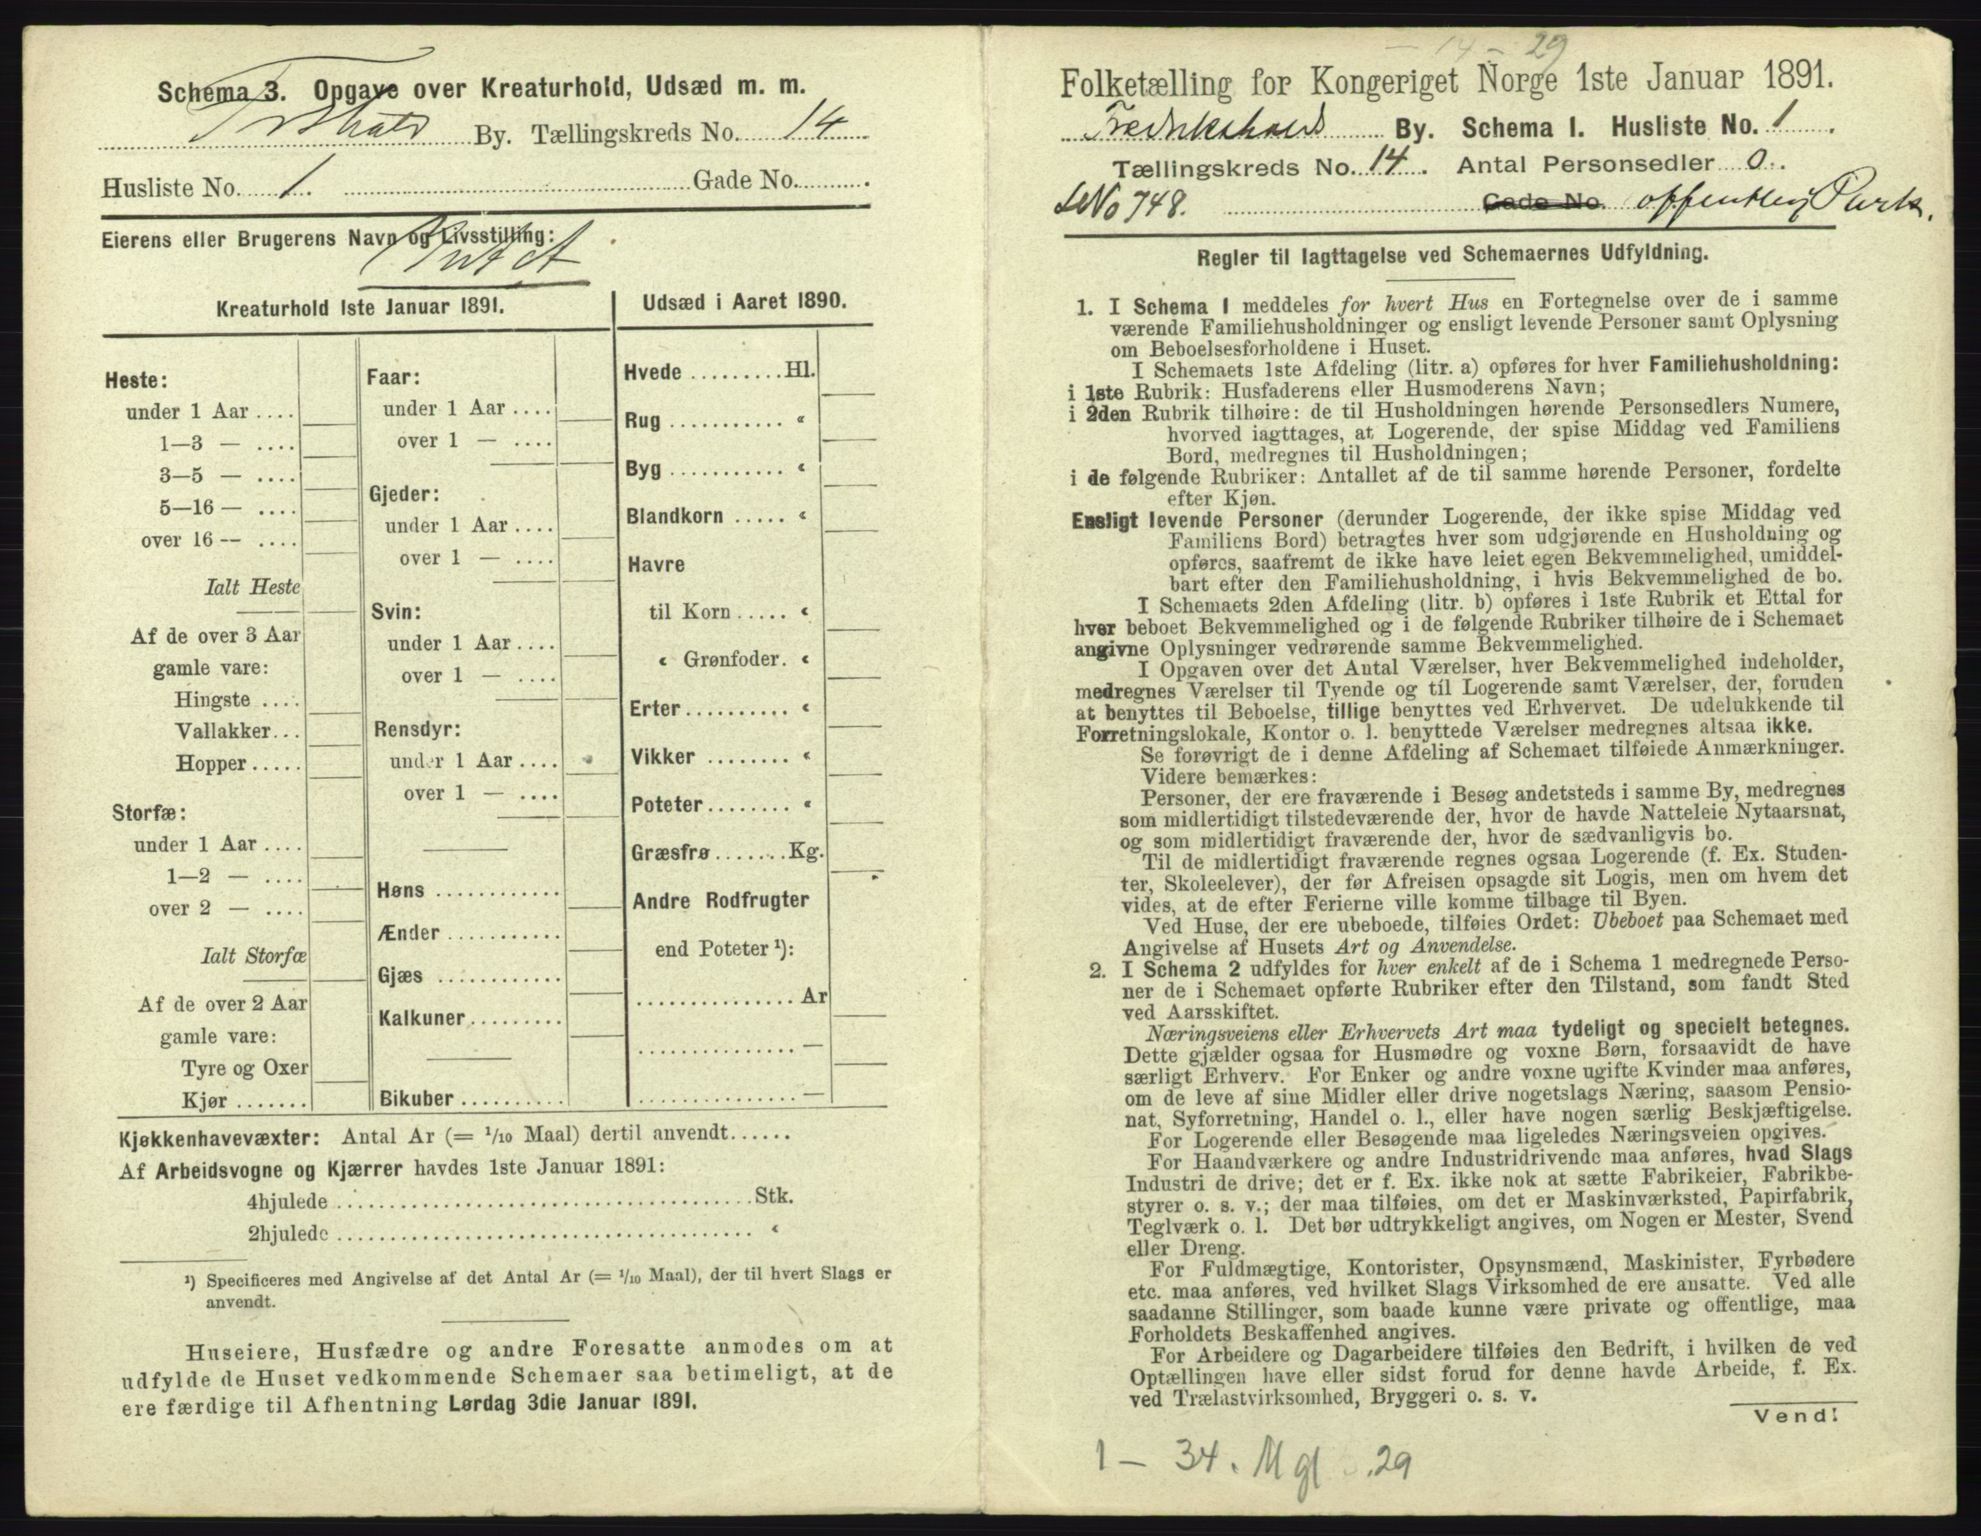 Schema 3. Opgave over Kreaturhold, Udsæd m. m.
Frhald By. Tællingskreds No. 14
Husliste No. 1. Gade No.
Eierens eller Brugerens Navn og Livsstilling:
Intet
Kreaturhold 1ste Januar 1891.
Heste:
under 1 Aar ....
1—3 — ....
3—5 — ....
5—16 — ....
over 16 — ....
Ialt Heste
Af de over 3 Aar
gamle vare:
Hingste ....
Vallakker...
Hopper.....
Storfæ:
under 1 Aar ....
1—2 — ....
over 2 — ....
Ialt Storfæ
Af de over 2 Aar
gamle vare:
Tyre og Oxer
Kjør.......
Faar:
under 1 Aar ....
over 1 — ....
Gjeder:
under 1 Aar ....
over 1 — ....
Svin:
under 1 Aar ....
over 1 — ....
Rensdyr:
under 1 Aar ....
over 1 — ....
Høns ............
Ænder ...........
Gjæs ............
Kalkuner.........
Bikuber ..........
Udsæd i Aaret 1890.
Hvede .........Hl.
Rug ........... «
Byg ........... «
Blandkorn ..... «
Havre
til Korn ..... «
« Grønfoder. «
Erter.......... «
Vikker ........ «
Poteter........ «
Græsfrø .......Kg.
Andre Rodfrugter
end Poteter ¹):
............... Ar
............... —
............... —
Kjøkkenhavevæxter: Antal Ar (= 1/10 Maal) dertil anvendt......
Af Arbeidsvogne og Kjærrer havdes 1ste Januar 1891:
4hjulede ........................................Stk.
2hjulede ........................................ «
¹) Specificeres med Angivelse af det Antal Ar (= 1/10 Maal), der til hvert Slags er
anvendt.
Huseiere, Husfædre og andre Foresatte anmodes om at
udfylde de Huset vedkommende Schemaer saa betimeligt, at de
ere færdige til Afhentning Lørdag 3die Januar 1891.
— 14 — 29
Folketælling for Kongeriget Norge 1ste Januar 1891.
Fredrikshald By. Schema I. Husliste No. 1.
Tællingskreds No. 14. Antal Personsedler 0.
LNo 748. Gade No. offentlig Park.
Regler til Iagttagelse ved Schemaernes Udfyldning.
1. I Schema 1 meddeles for hvert Hus en Fortegnelse over de i samme
værende Familiehusholdninger og ensligt levende Personer samt Oplysning
om Beboelsesforholdene i Huset.
I Schemaets 1ste Afdeling (litr. a) opføres for hver Familiehusholdning:
i 1ste Rubrik: Husfaderens eller Husmoderens Navn;
i 2den Rubrik tilhøire: de til Husholdningen hørende Personsedlers Numere,
hvorved iagttages, at Logerende, der spise Middag ved Familiens
Bord, medregnes til Husholdningen;
i de følgende Rubriker: Antallet af de til samme hørende Personer, fordelte
efter Kjøn.
Ensligt levende Personer (derunder Logerende, der ikke spise Middag ved
Familiens Bord) betragtes hver som udgjørende en Husholdning og
opføres, saafremt de ikke have leiet egen Bekvemmelighed, umiddel-
bart efter den Familiehusholdning, i hvis Bekvemmelighed de bo.
I Schemaets 2den Afdeling (litr. b) opføres i 1ste Rubrik et Ettal for
hver beboet Bekvemmelighed og i de følgende Rubriker tilhøire de i Schemaet
angivne Oplysninger vedrørende samme Bekvemmelighed.
I Opgaven over det Antal Værelser, hver Bekvemmelighed indeholder,
medregnes Værelser til Tyende og til Logerende samt Værelser, der, foruden
at benyttes til Beboelse, tillige benyttes ved Erhvervet. De udelukkende til
Forretningslokale, Kontor o. l. benyttede Værelser medregnes altsaa ikke.
Se forøvrigt de i denne Afdeling af Schemaet tilføiede Anmærkninger.
Videre bemærkes:
Personer, der ere fraværende i Besøg andetsteds i samme By, medregnes
som midlertidigt tilstedeværende der, hvor de havde Natteleie Nytaarsnat,
og som midlertidigt fraværende der, hvor de sædvanligvis bo.
Til de midlertidigt fraværende regnes ogsaa Logerende (f. Ex. Studen-
ter, Skoleelever), der før Afreisen opsagde sit Logis, men om hvem det
vides, at de efter Ferierne ville komme tilbage til Byen.
Ved Huse, der ere ubeboede, tilføies Ordet: Ubeboet paa Schemaet med
Angivelse af Husets Art og Anvendelse.
2. I Schema 2 udfyldes for hver enkelt af de i Schema 1 medregnede Perso-
ner de i Schemaet opførte Rubriker efter den Tilstand, som fandt Sted
ved Aarsskiftet.
Næringsveiens eller Erhvervets Art maa tydeligt og specielt betegnes.
Dette gjælder ogsaa for Husmødre og voxne Børn, forsaavidt de have
særligt Erhverv. For Enker og andre voxne ugifte Kvinder maa anføres,
om de leve af sine Midler eller drive nogetslags Næring, saasom Pensio-
nat, Syforretning, Handel o. l., eller have nogen særlig Beskjæftigelse.
For Logerende eller Besøgende maa ligeledes Næringsveien opgives.
For Haandværkere og andre Industridrivende maa anføres, hvad Slags
Industri de drive; det er f. Ex. ikke nok at sætte Fabrikeier, Fabrikbe-
styrer o. s. v.; der maa tilføies, om det er Maskinværksted, Papirfabrik,
Teglværk o. l. Det bør udtrykkeligt angives, om Nogen er Mester, Svend
eller Dreng.
For Fuldmægtige, Kontorister, Opsynsmænd, Maskinister, Fyrbødere
etc. maa anføres, ved hvilket Slags Virksomhed de ere ansatte. Ved alle
saadanne Stillinger, som baade kunne være private og offentlige, maa
Forholdets Beskaffenhed angives.
For Arbeidere og Dagarbeidere tilføies den Bedrift, i hvilken de ved
Optællingen have eller sidst forud for denne havde Arbeide, f. Ex.
ved Trælastvirksomhed, Bryggeri o. s. v.
Vend!
1 — 34. Mgl .29